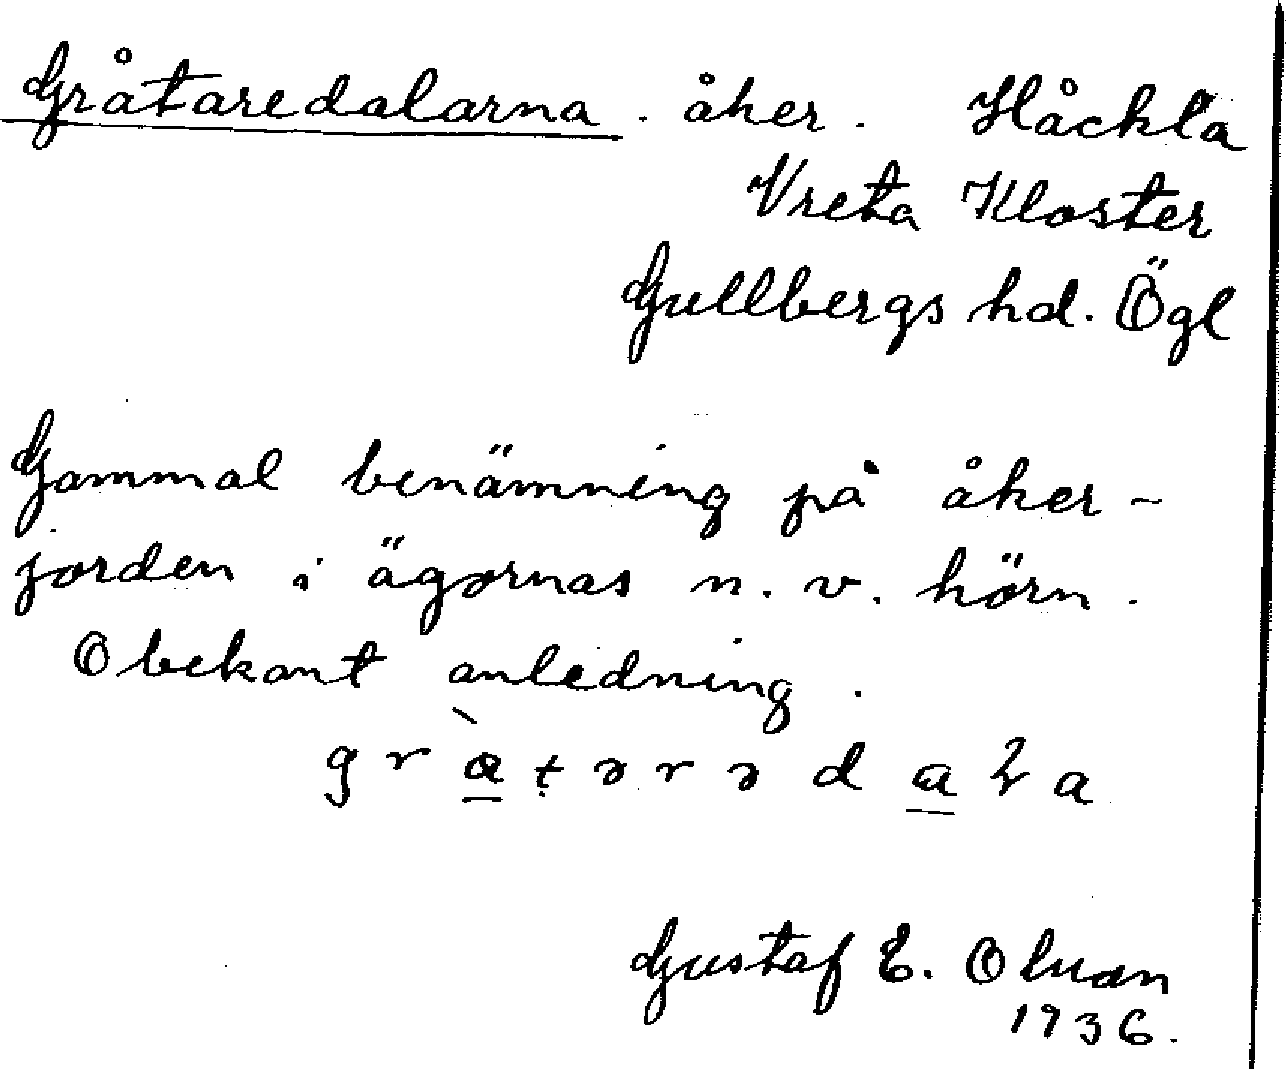 Gråtaredalarna . åker . Håckla
Vreta Kloster
Gullbergs hd. Ögl
Gammal benämning på åker-
jorden i ägornas n. v. hörn.
Obekant anledning .
Gustaf E. Olsson
1936.